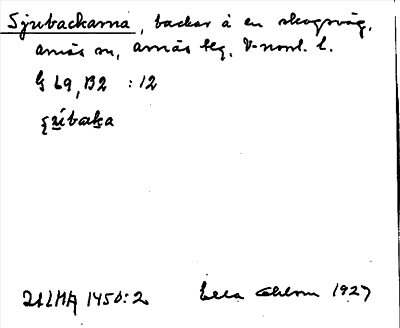 Sjubackarna, backar å en skogsväg,
Arnäs sn, Arnäs tg, V-norrl. l.
G 69, B2 : 12
ULMA 1450:2 Ella Ohlson 1927